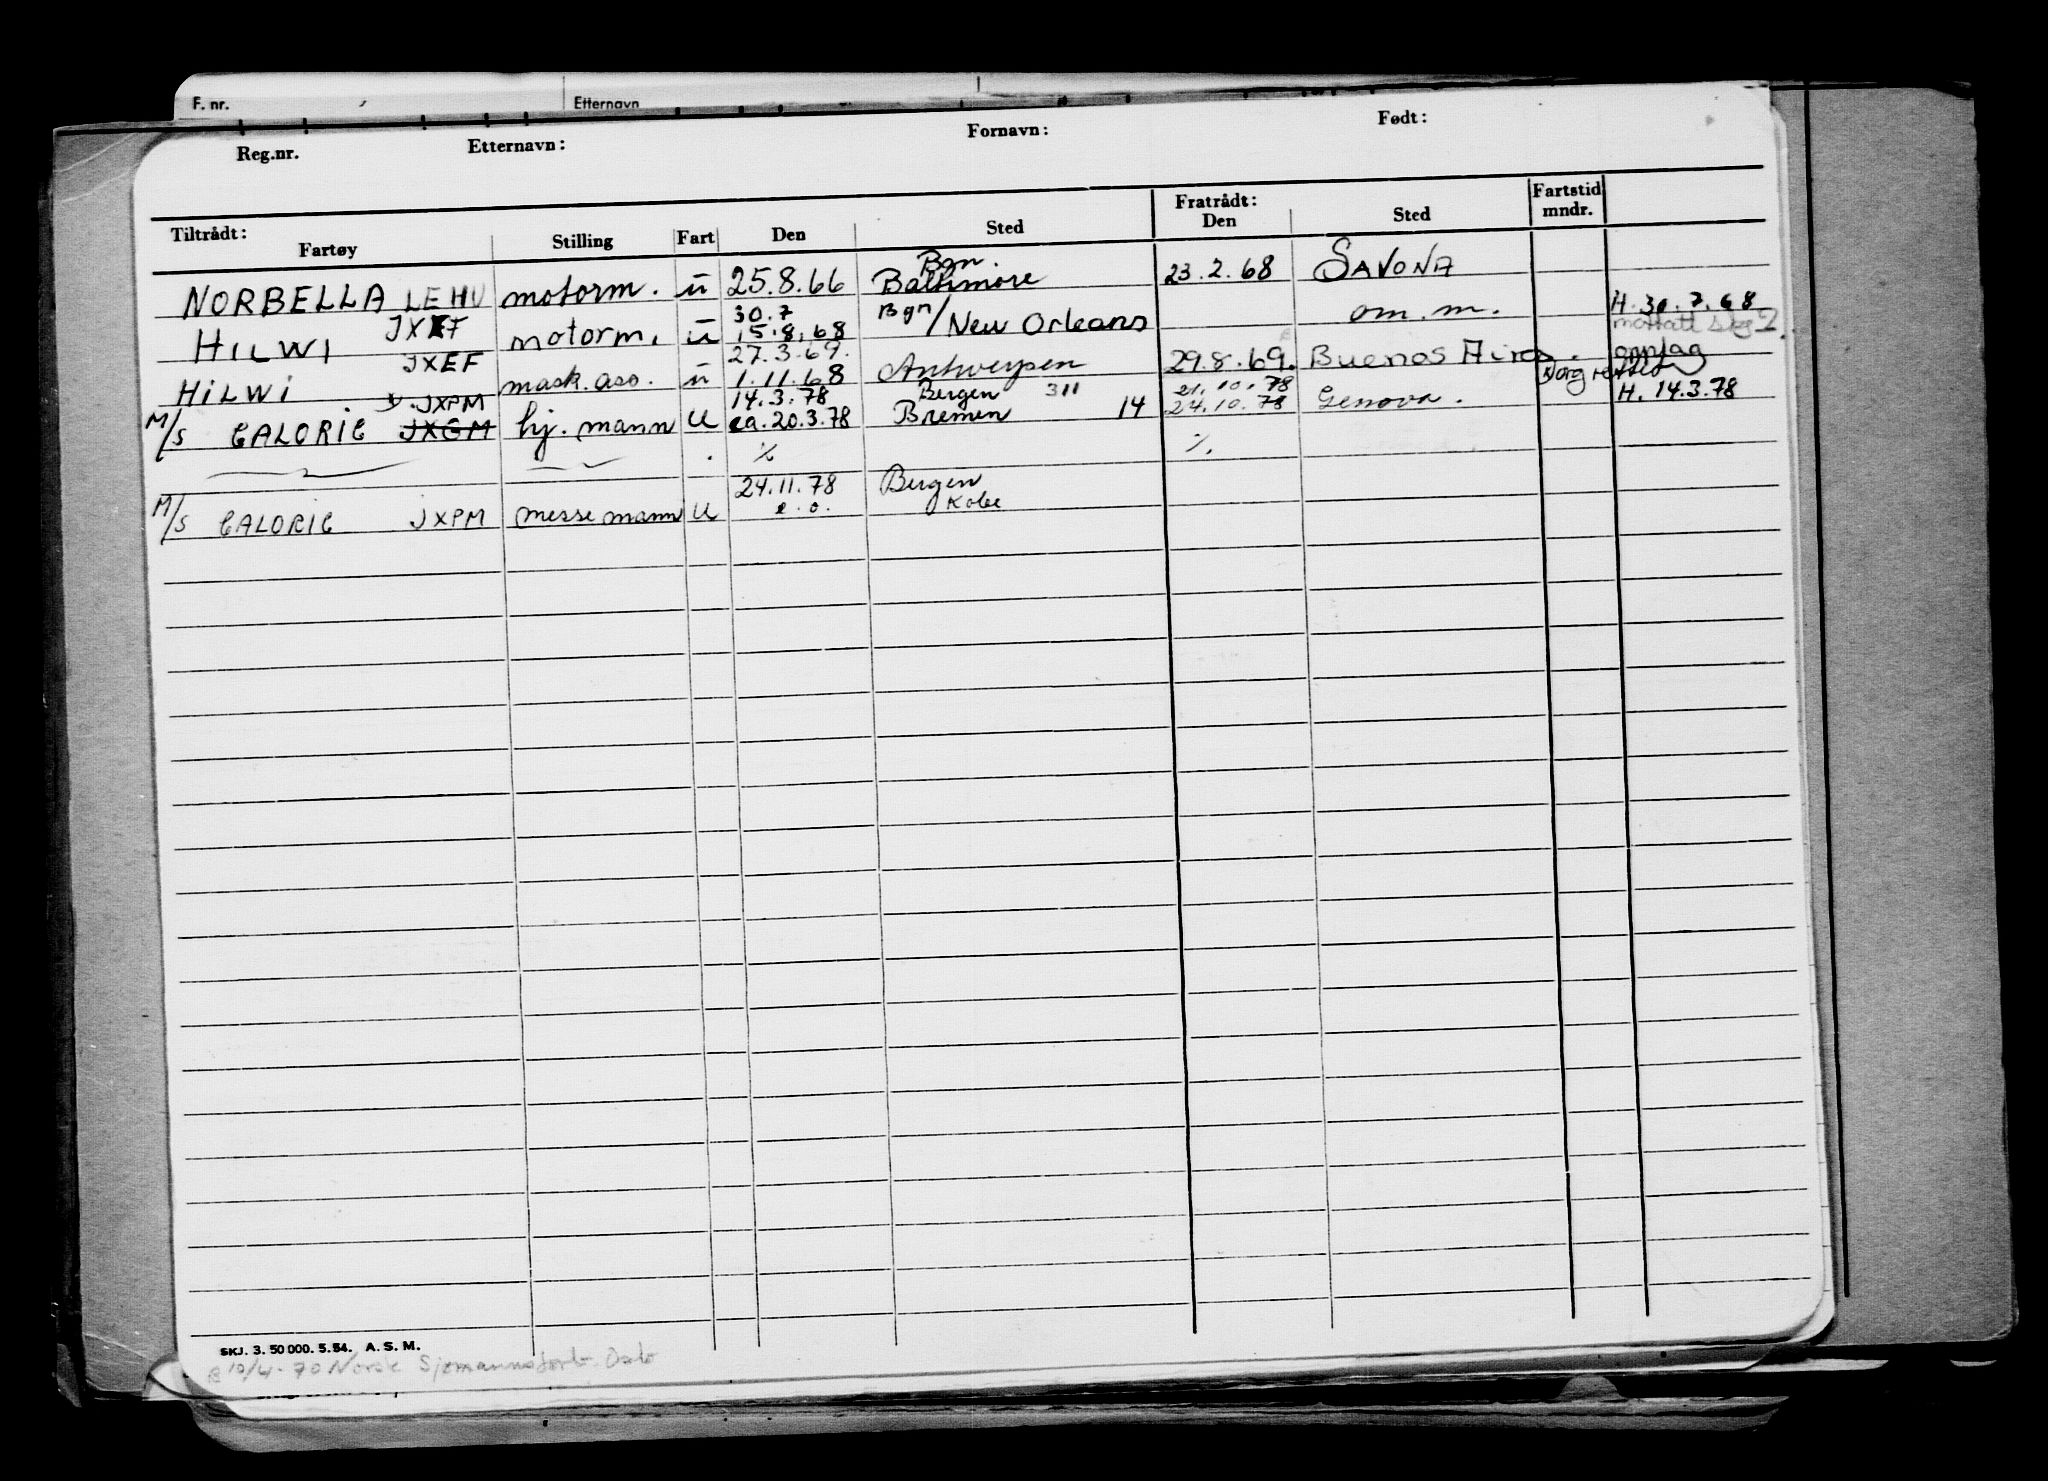 F. nr. Etternavn
Reg.nr. Etternavn: Fornavn: Født:
Tiltrådt: Fratrådt: Fartstid
Fartøy Stilling Fart Den Sted Den Sted mndr.
Bgn.
NORBELLA LEHU motorm. u 25.8.66 Baltimore 23.2.68 SAVONA
30.7 H. 30.7.68
HILWI JXEF motorm. u 15.8.68 Bgn/New Orleans om. m. mottatt
27.3.69. opplag
HILWI JXEF mask. ass. u 1.11.68 Antwerpen 29.8.69. Buenos Aires.
JXPM 14.3.78 Bergen 311 21.10.78 H. 14.3.78
M/S CALORIC JXGM hj. mann U ca. 20.3.78 Bremen 14 24.10.78 Genova.
٪ ٪
24.11.78 Bergen
M/S CALORIC JXPM messemann U e.o. Kobe
SKJ. 3. 50 000. 5. 54. A. S. M.
10/4-70 Norsk Sjømannsforb. Oslo